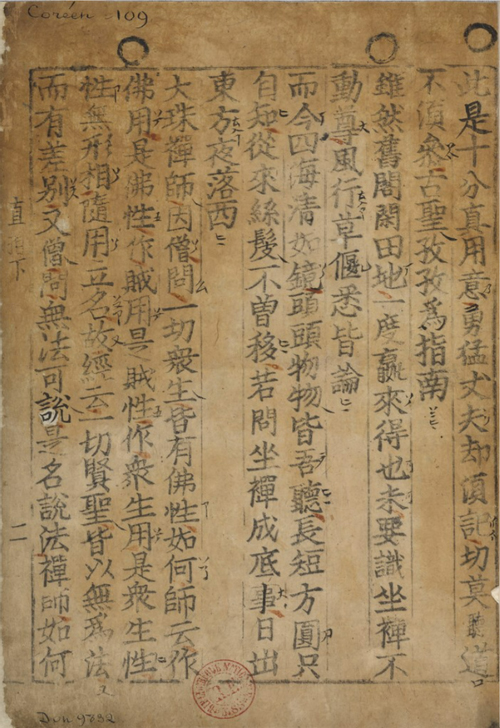 Coréen 109
此是十分真用意勇猛丈夫却須記切莫聽道
不須參古聖孜孜爲指南
雖然舊閣閑田地一度贏來得也未要識坐禪不
動尊風行草偃悉皆論
而今四海清如鏡頭頭物物皆吾聽長短方圓只
自知從來絲髮不曾移若問坐禪成底事日出
東方夜落西
大珠禪師因僧問一切衆生皆有佛性如何師云作
佛用是佛性作賊用是賊性作衆生用是衆生性
性無形相隨用立名故經云一切賢聖皆以無爲法
而有差別又僧問無法可說是名說法禪師如何
直指下 二
Don 9832